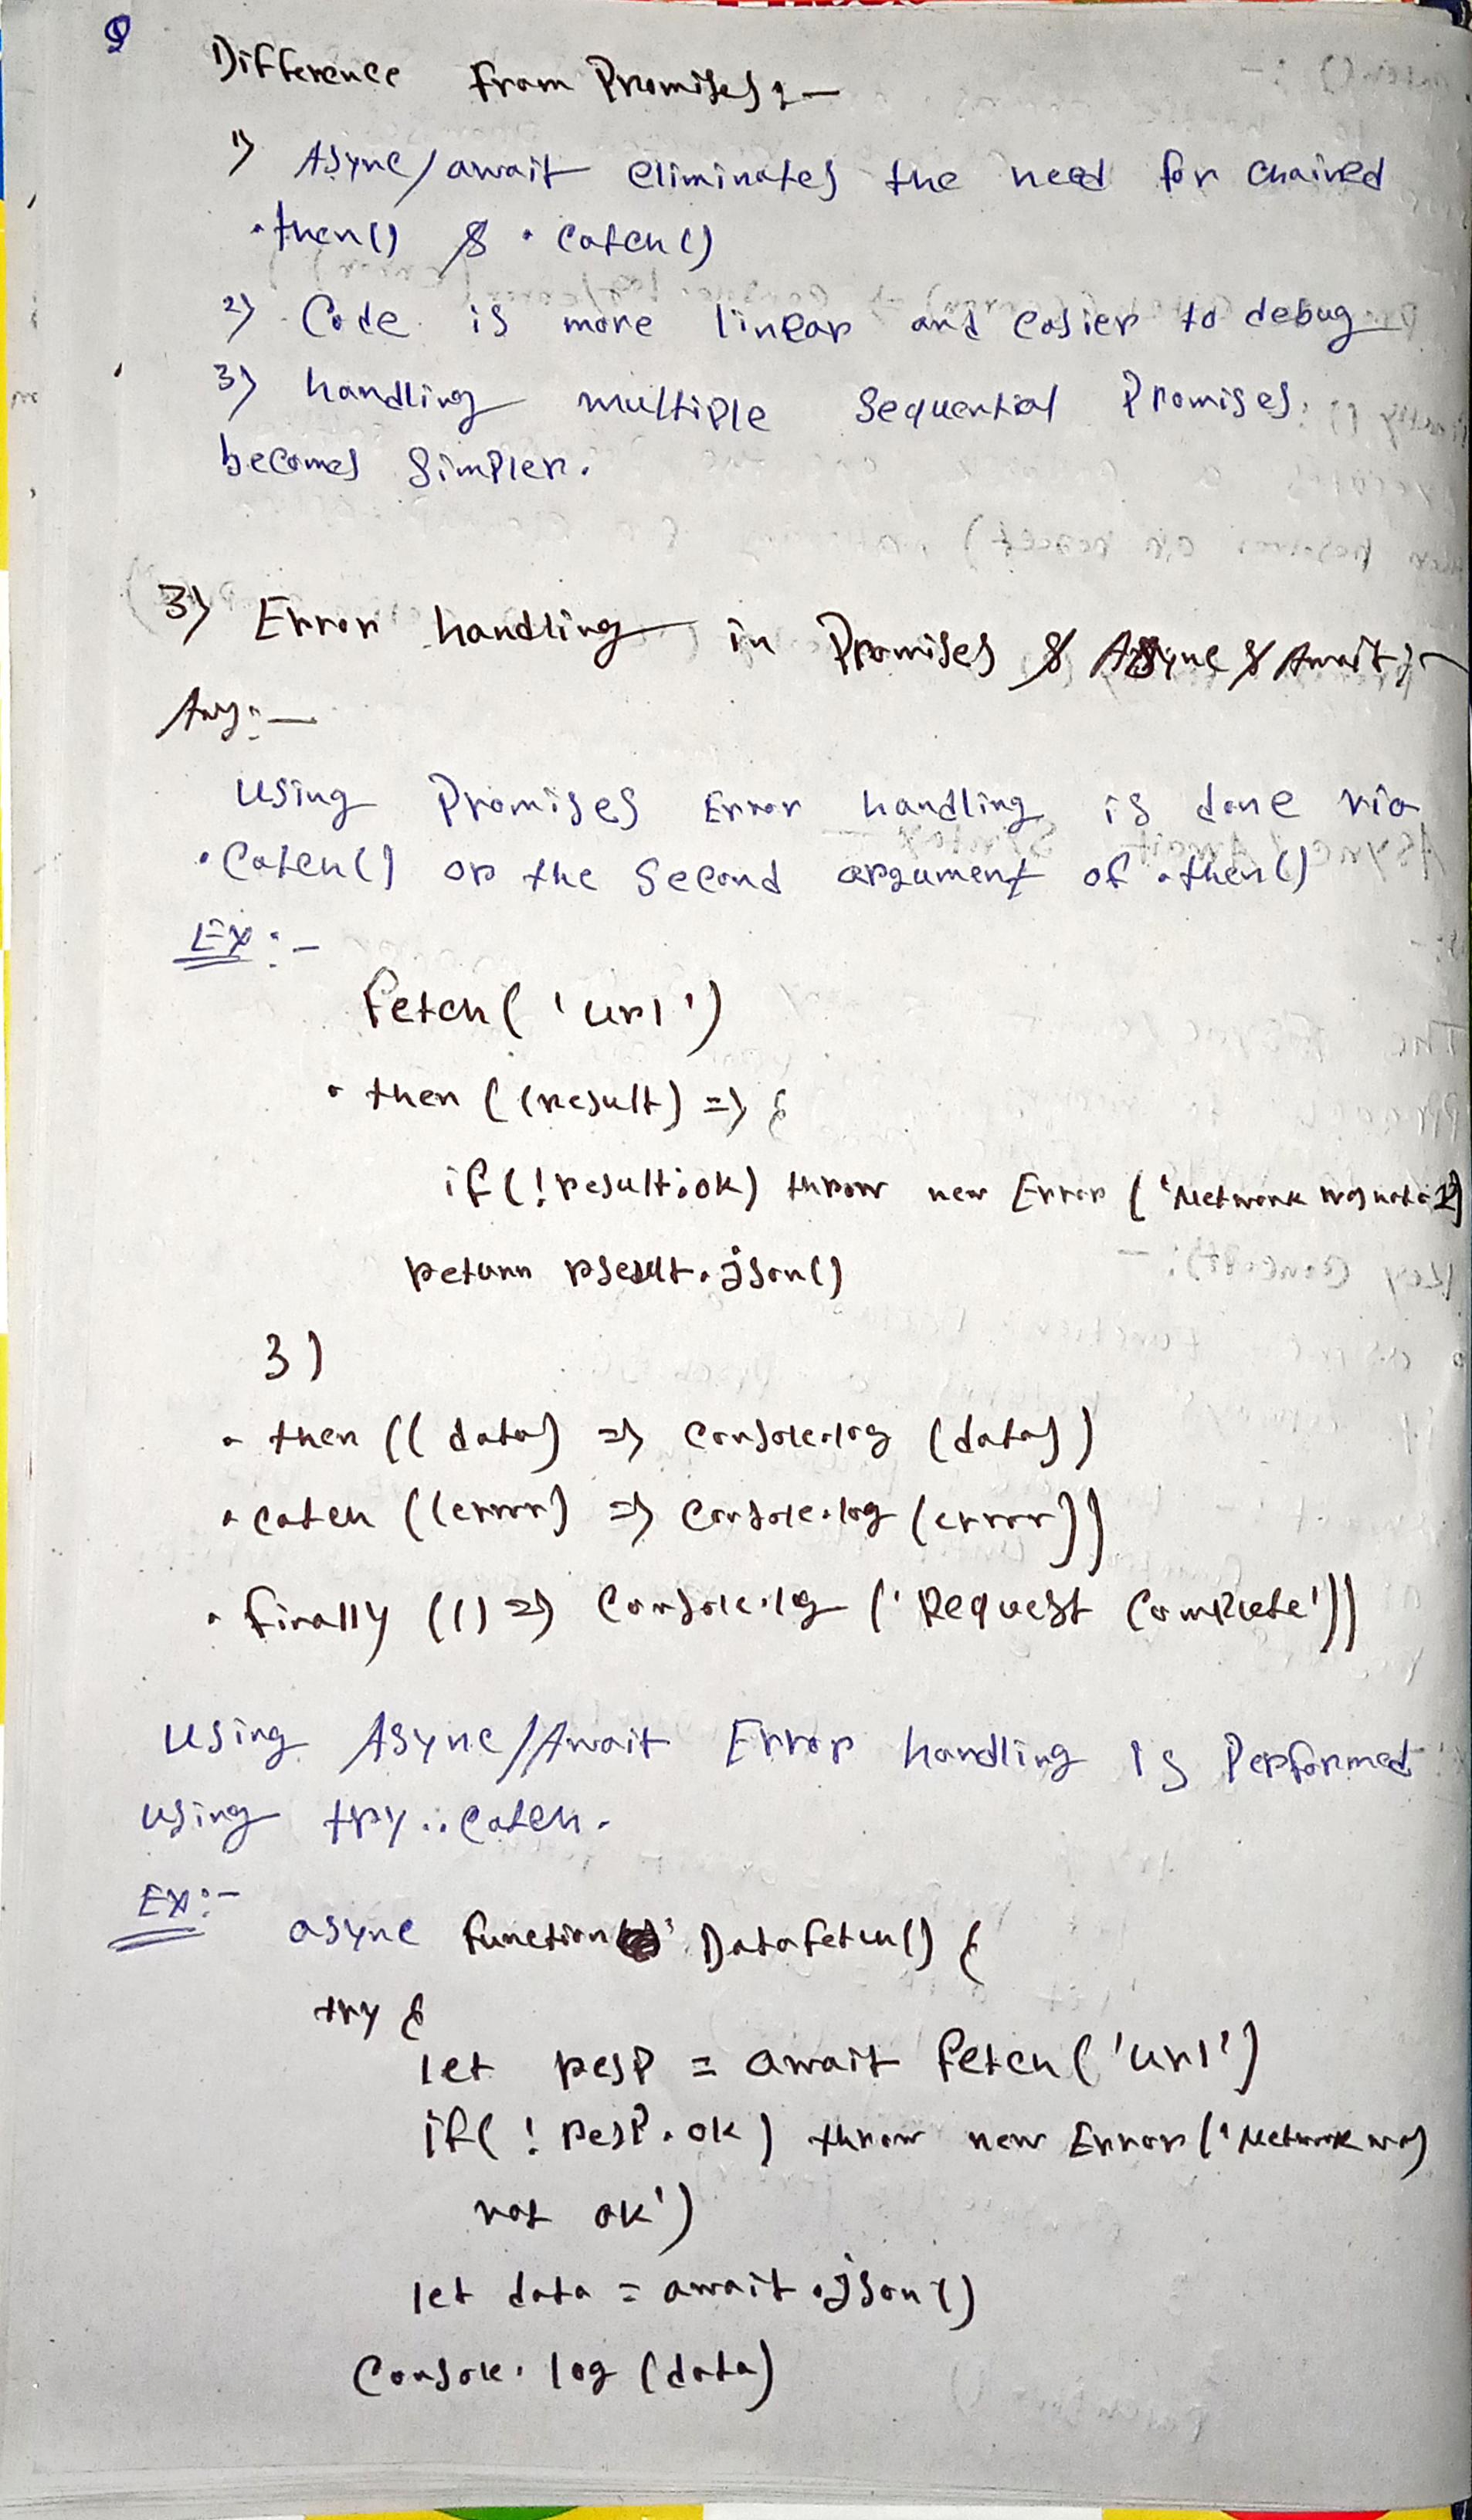 Difference from Promises :-
1) Async/await eliminates the need for chained
.then() & .catch()
2) Code is more linear and easier to debug
3) handling multiple sequential Promises
becomes simpler.
3) Error handling in Promises & Async & Await :-
Ans :-
Using Promises Error handling is done via
.catch() or the second argument of .then()
Ex :-
fetch('url')
.then((result) => {
if(!result.ok) throw new Error('Network was not
return result.json()
})
.then((data) => console.log(data))
.catch((error) => console.log(error))
.finally(() => console.log('Request Complete'))
Using Async/Await Error handling is Performed
using try..catch.
Ex :-
async function DataFetch() {
try {
let resp = await fetch('url')
if(!resp.ok) throw new Error('Network was
not ok')
let data = await .json()
Console.log(data)